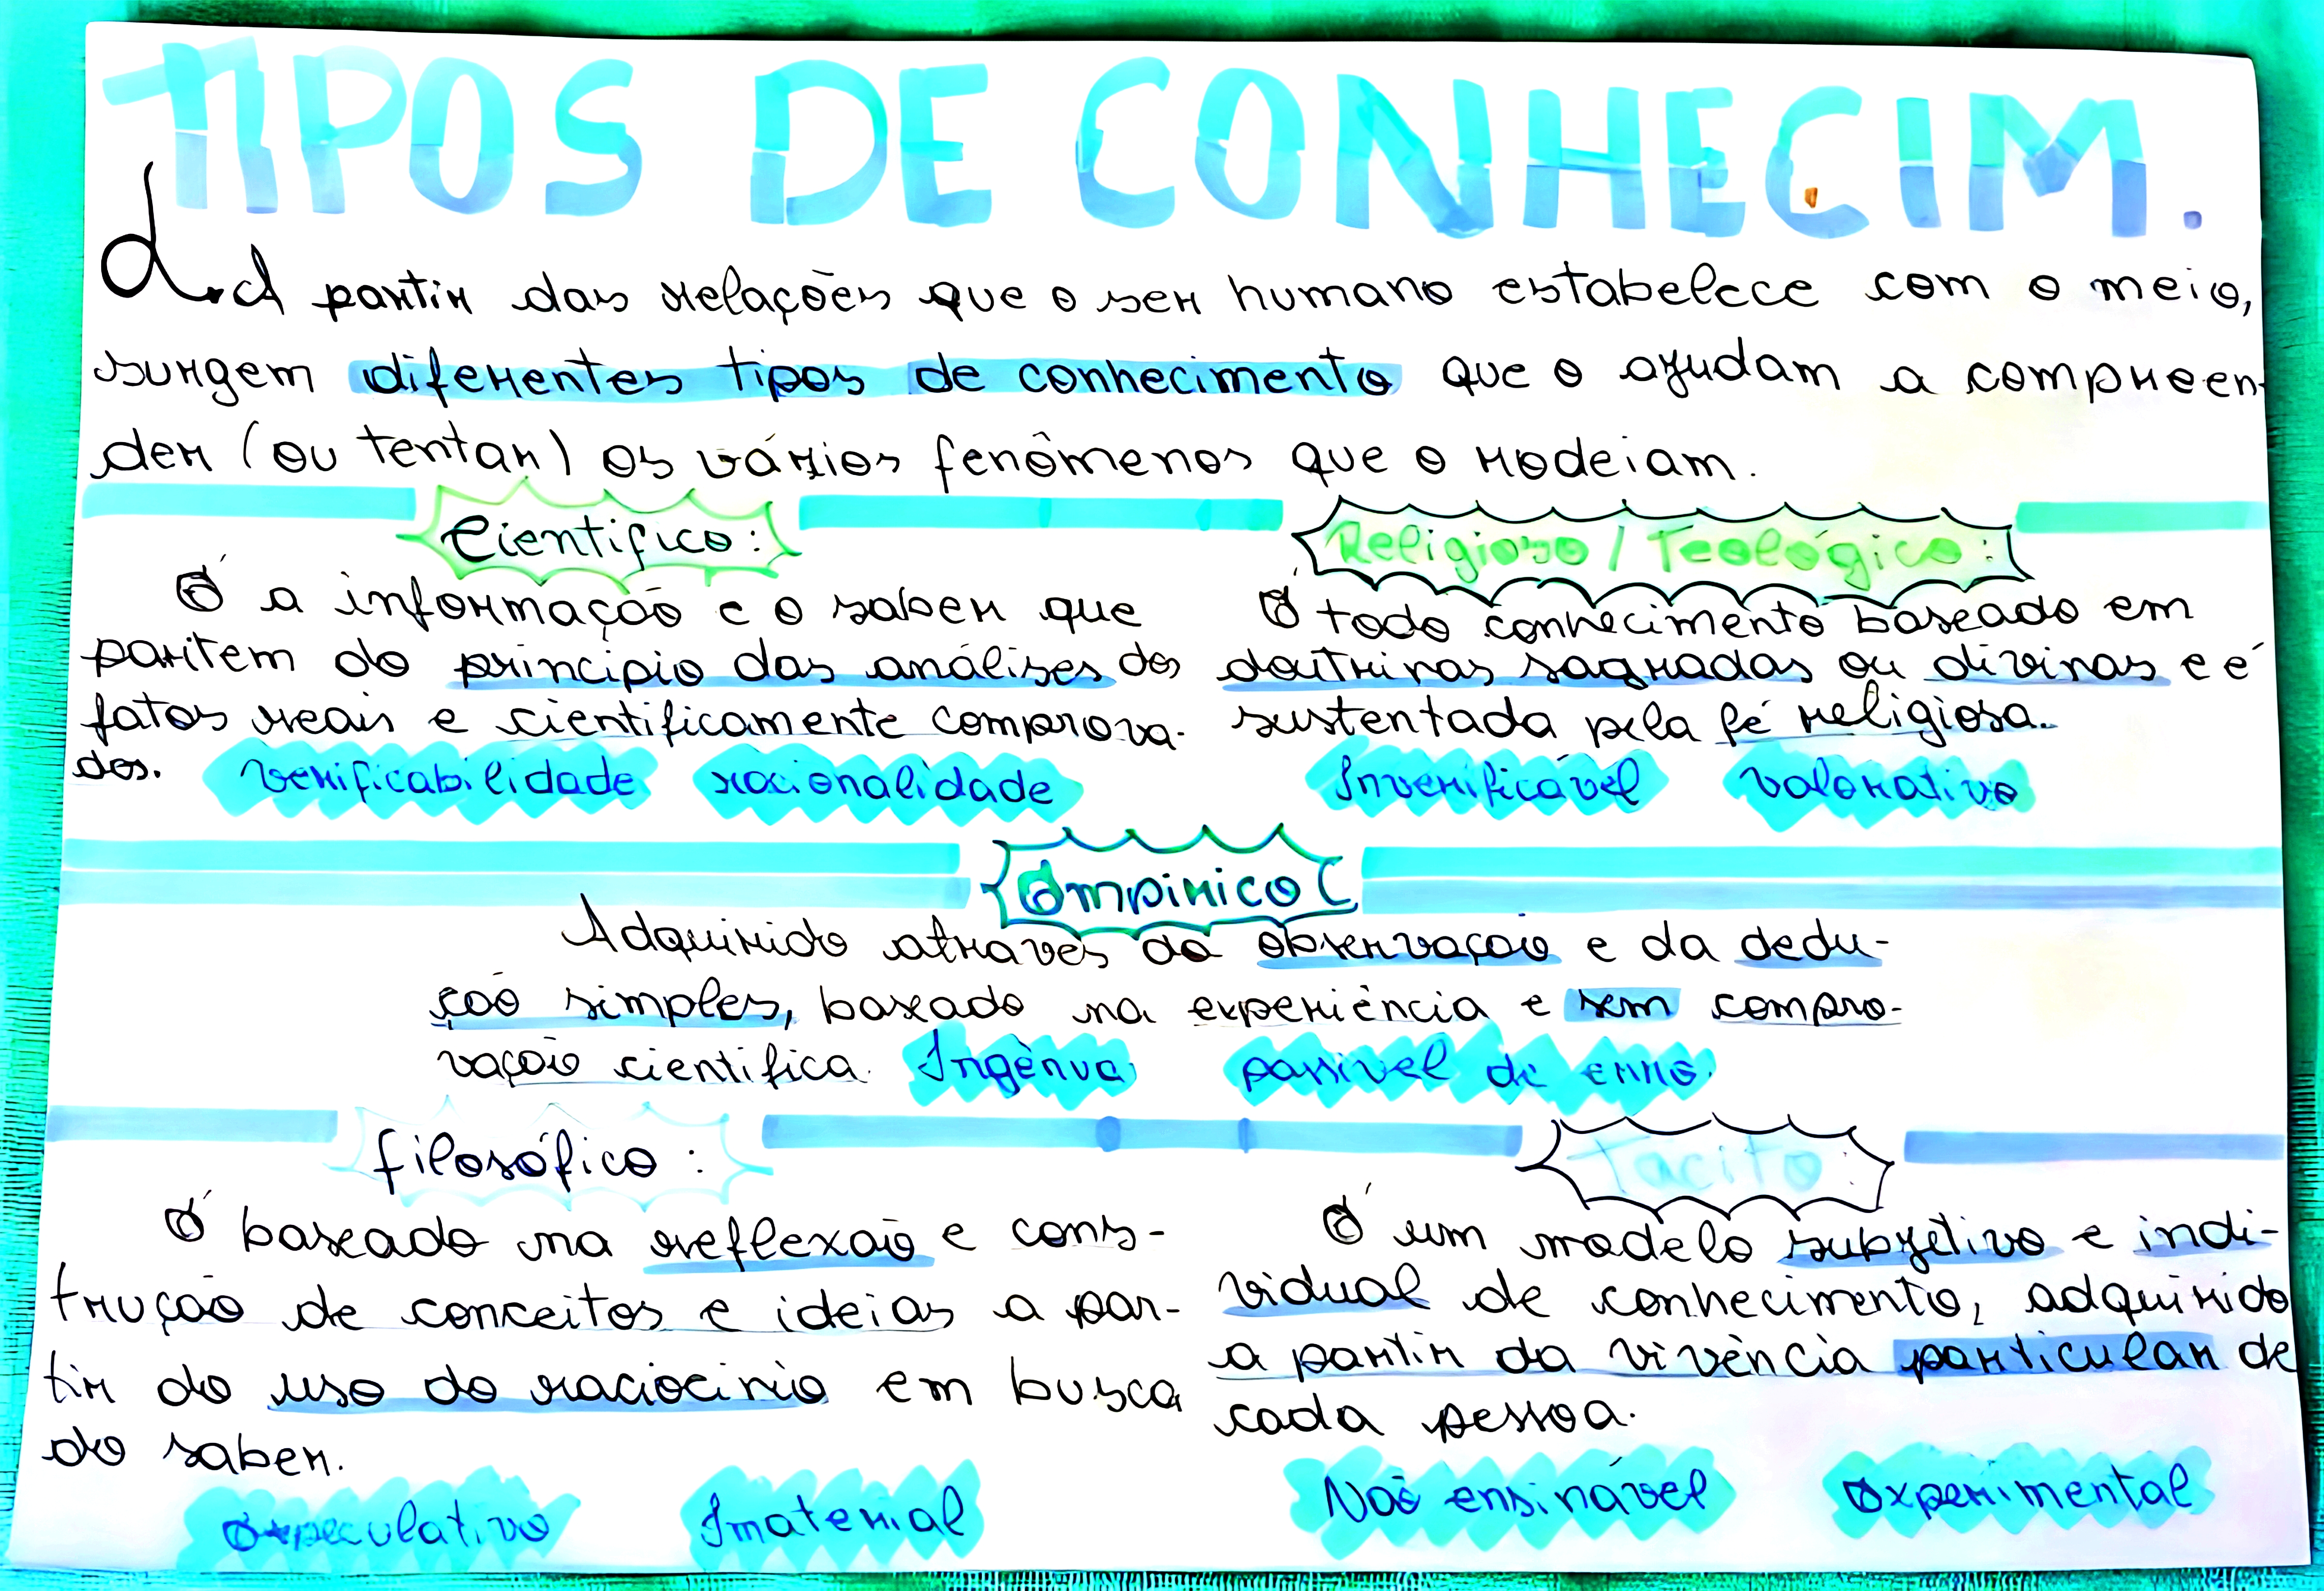 TIPOS DE CONHECIM.
A partir das relações que o ser humano estabelece com o meio,
surgem diferentes tipos de conhecimento que o ajudam a compreen-
der (ou tentar) os vários fenômenos que o rodeiam.
Científico:
É a informação e o saber que
partem do princípio das análises dos
fatos reais e cientificamente comprova-
dos.
verificabilidade racionalidade
Religioso / Teológico:
É todo conhecimento baseado em
doutrinas sagradas ou divinas e é
sustentada pela fé religiosa.
Inverificável valorativo
Empirico
Adquirido através da observação e da dedu-
ção simples, baseado na experiência e sem compro-
vação científica. Ingênua passível de erro.
filosófico:
É baseado na reflexão e cons-
trução de conceitos e ideias a par-
tir do uso do raciocínio em busca
do saber.
Especulativo Imaterial
Tacito:
É um modelo subjetivo e indi-
vidual de conhecimento, adquirido
a partir da vivência particular de
cada pessoa.
Não ensinável Experimental